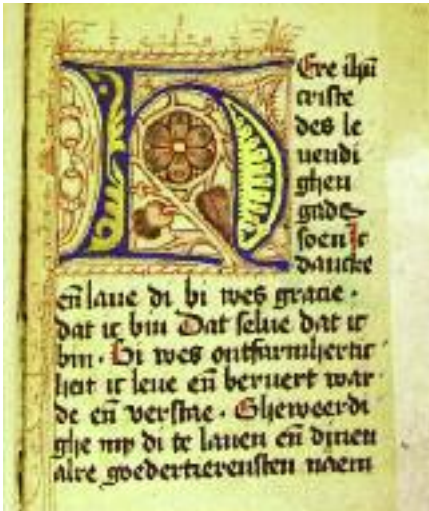 Ere ihū
criste
des le
uendi
ghen
gade
soen Ic
dancke
eñ laue di bi wes gracie ·
dat ic bin Dat selue dat ic
bin · Bi wes ontfarmhertic
heit ic leue eñ beruert war
de eñ verstae · Gheweerdi
ghe my di te lauen eñ dinen
alre goedertierensten naem